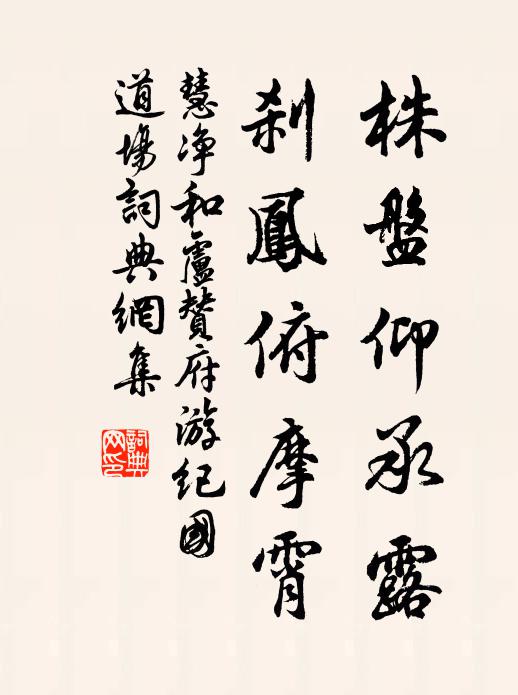 株盤仰承露
刹鳳俯摩霄
慧淨和盧贊府游紀國
道場詞典網集
詞典網印